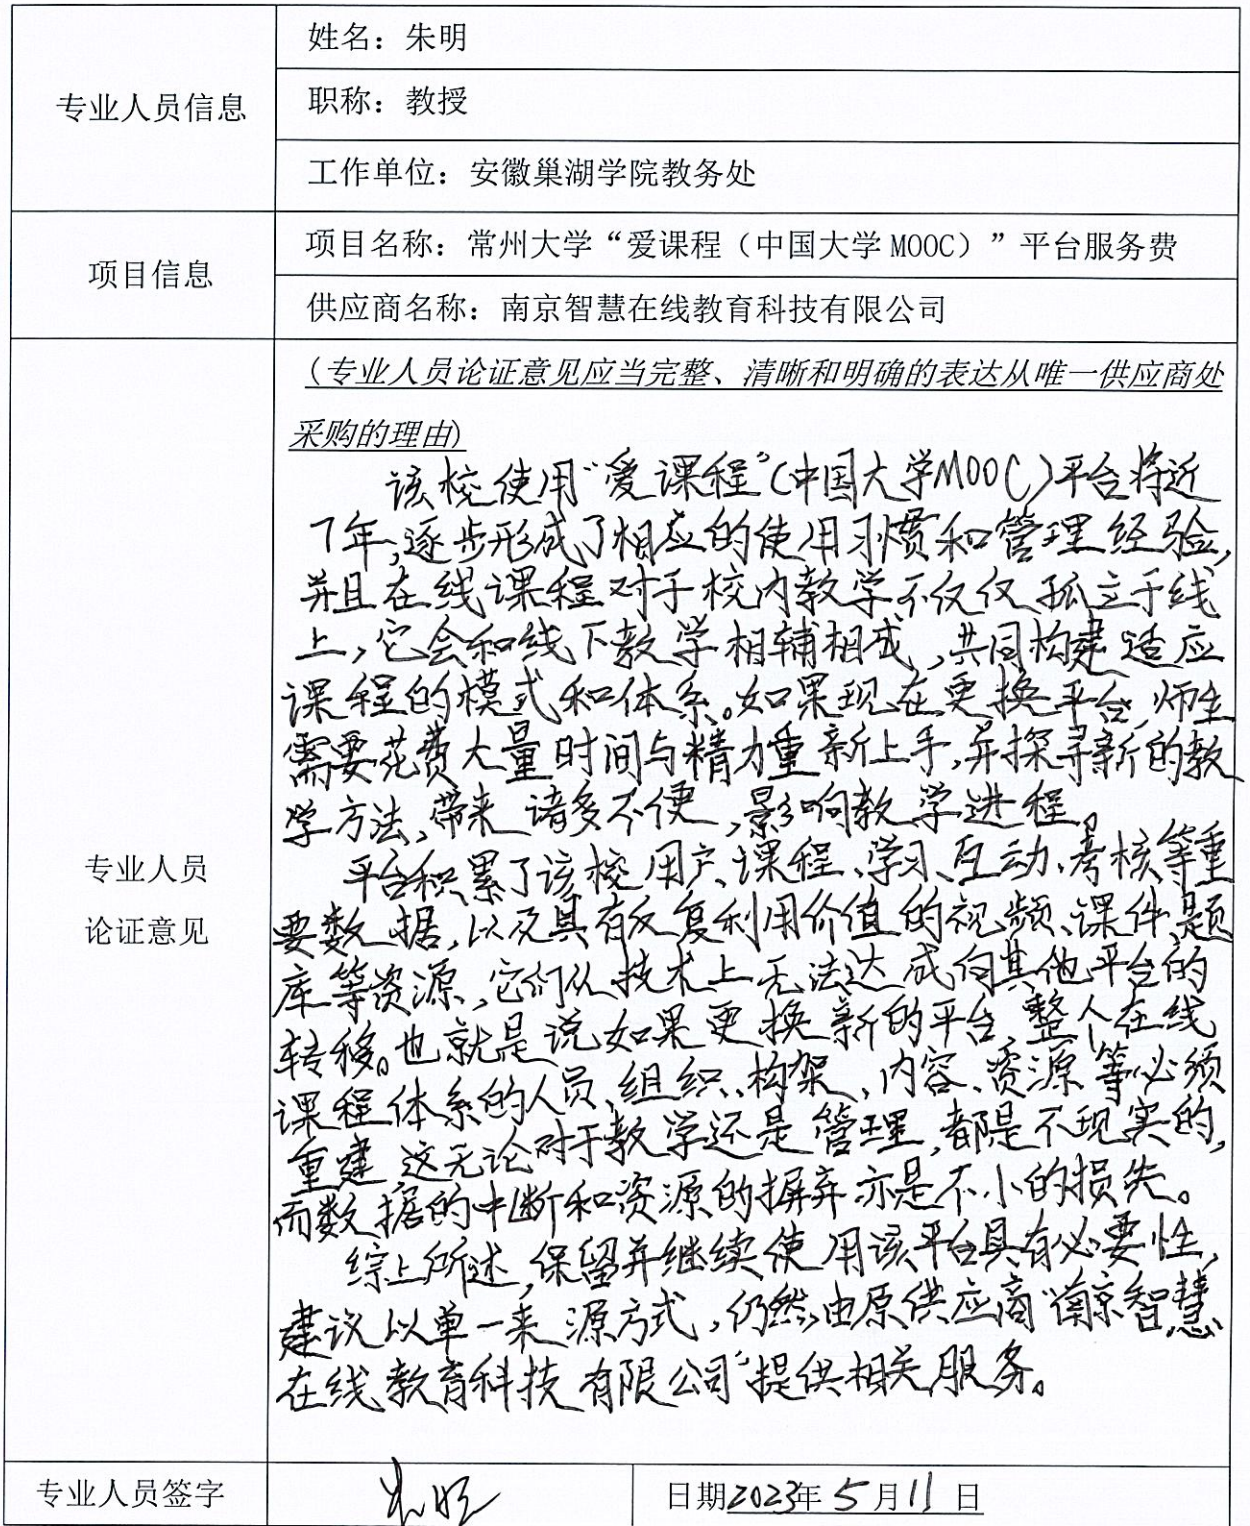 专业人员信息
姓名：朱明
职称：教授
工作单位：安徽巢湖学院教务处
项目信息
项目名称：常州大学“爱课程（中国大学 MOOC）”平台服务费
供应商名称：南京智慧在线教育科技有限公司
专业人员
论证意见
(专业人员论证意见应当完整、清晰和明确的表达从唯一供应商处
采购的理由)
该校使用“爱课程”(中国大学MOOC)平台将近
7年,逐步形成了相应的使用习惯和管理经验,
并且在线课程对于校内教学不仅仅孤立于线
上,它会和线下教学相辅相成,共同构建适应
课程的模式和体系。如果现在更换平台,师生
需要花费大量时间与精力重新上手,并探寻新的教
学方法,带来诸多不便,影响教学进程。
平台积累了该校用户、课程、学习、互动、考核等重
要数据,以及具有反复利用价值的视频、课件、题
库等资源,它们从技术上无法达成向其他平台的
转移。也就是说如果更换新的平台,整个在线
课程体系的人员、组织、构架、内容、资源等必须
重建,这无论对于教学还是管理,都是不现实的,
而数据的中断和资源的摒弃亦是不小的损失。
综上所述,保留并继续使用该平台具有必要性,
建议以单一来源方式,仍然由原供应商“南京智慧
在线教育科技有限公司”提供相关服务。
专业人员签字
朱明
日期2023年 5月11日